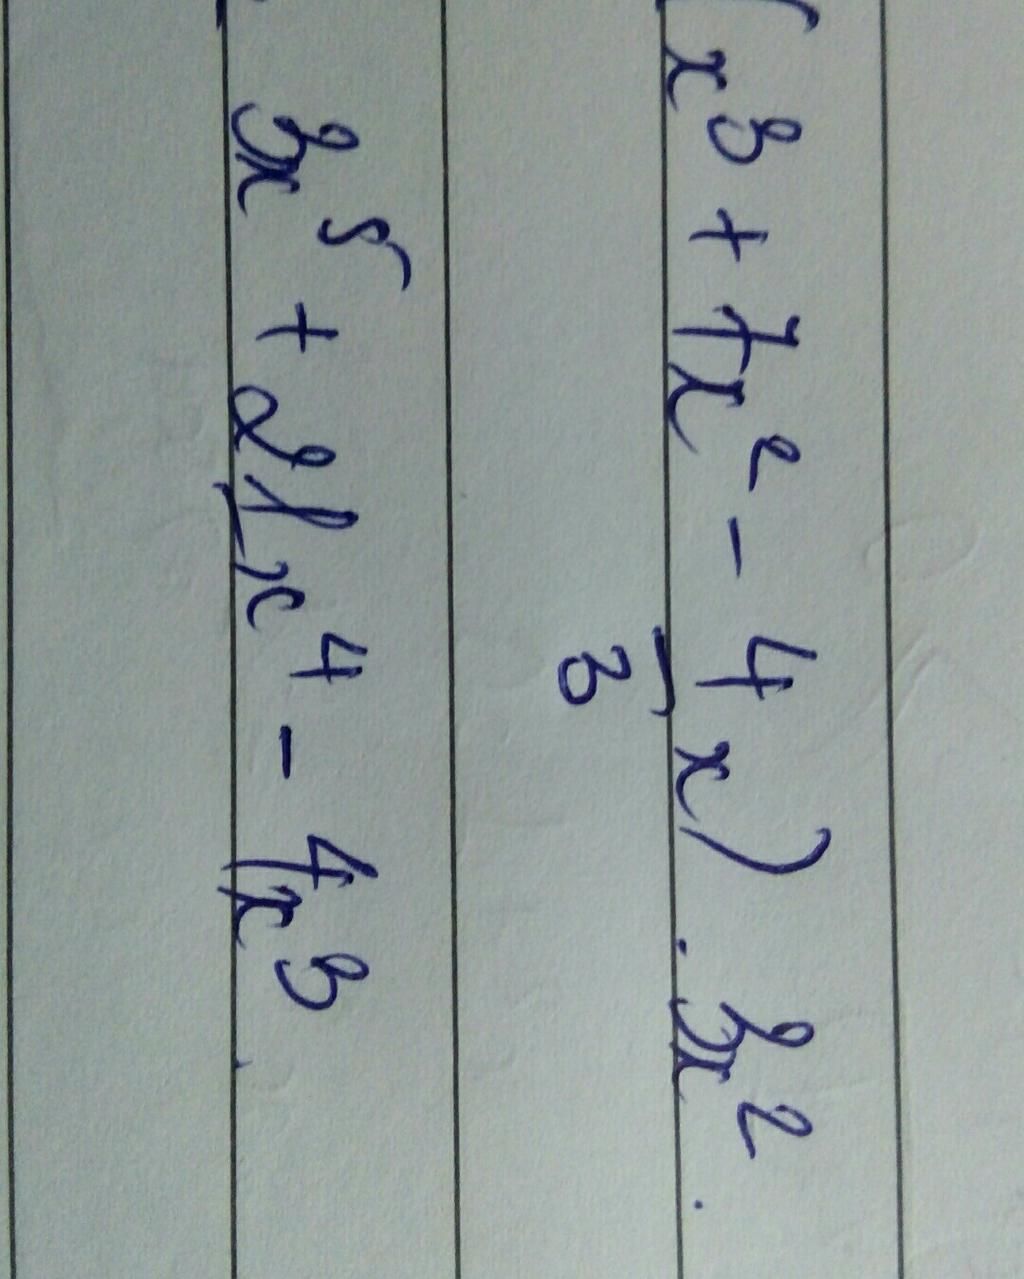 (x³ + 7x² - 4/3 x) . 3x² .
= 3x⁵ + 21x⁴ - 4x³ .